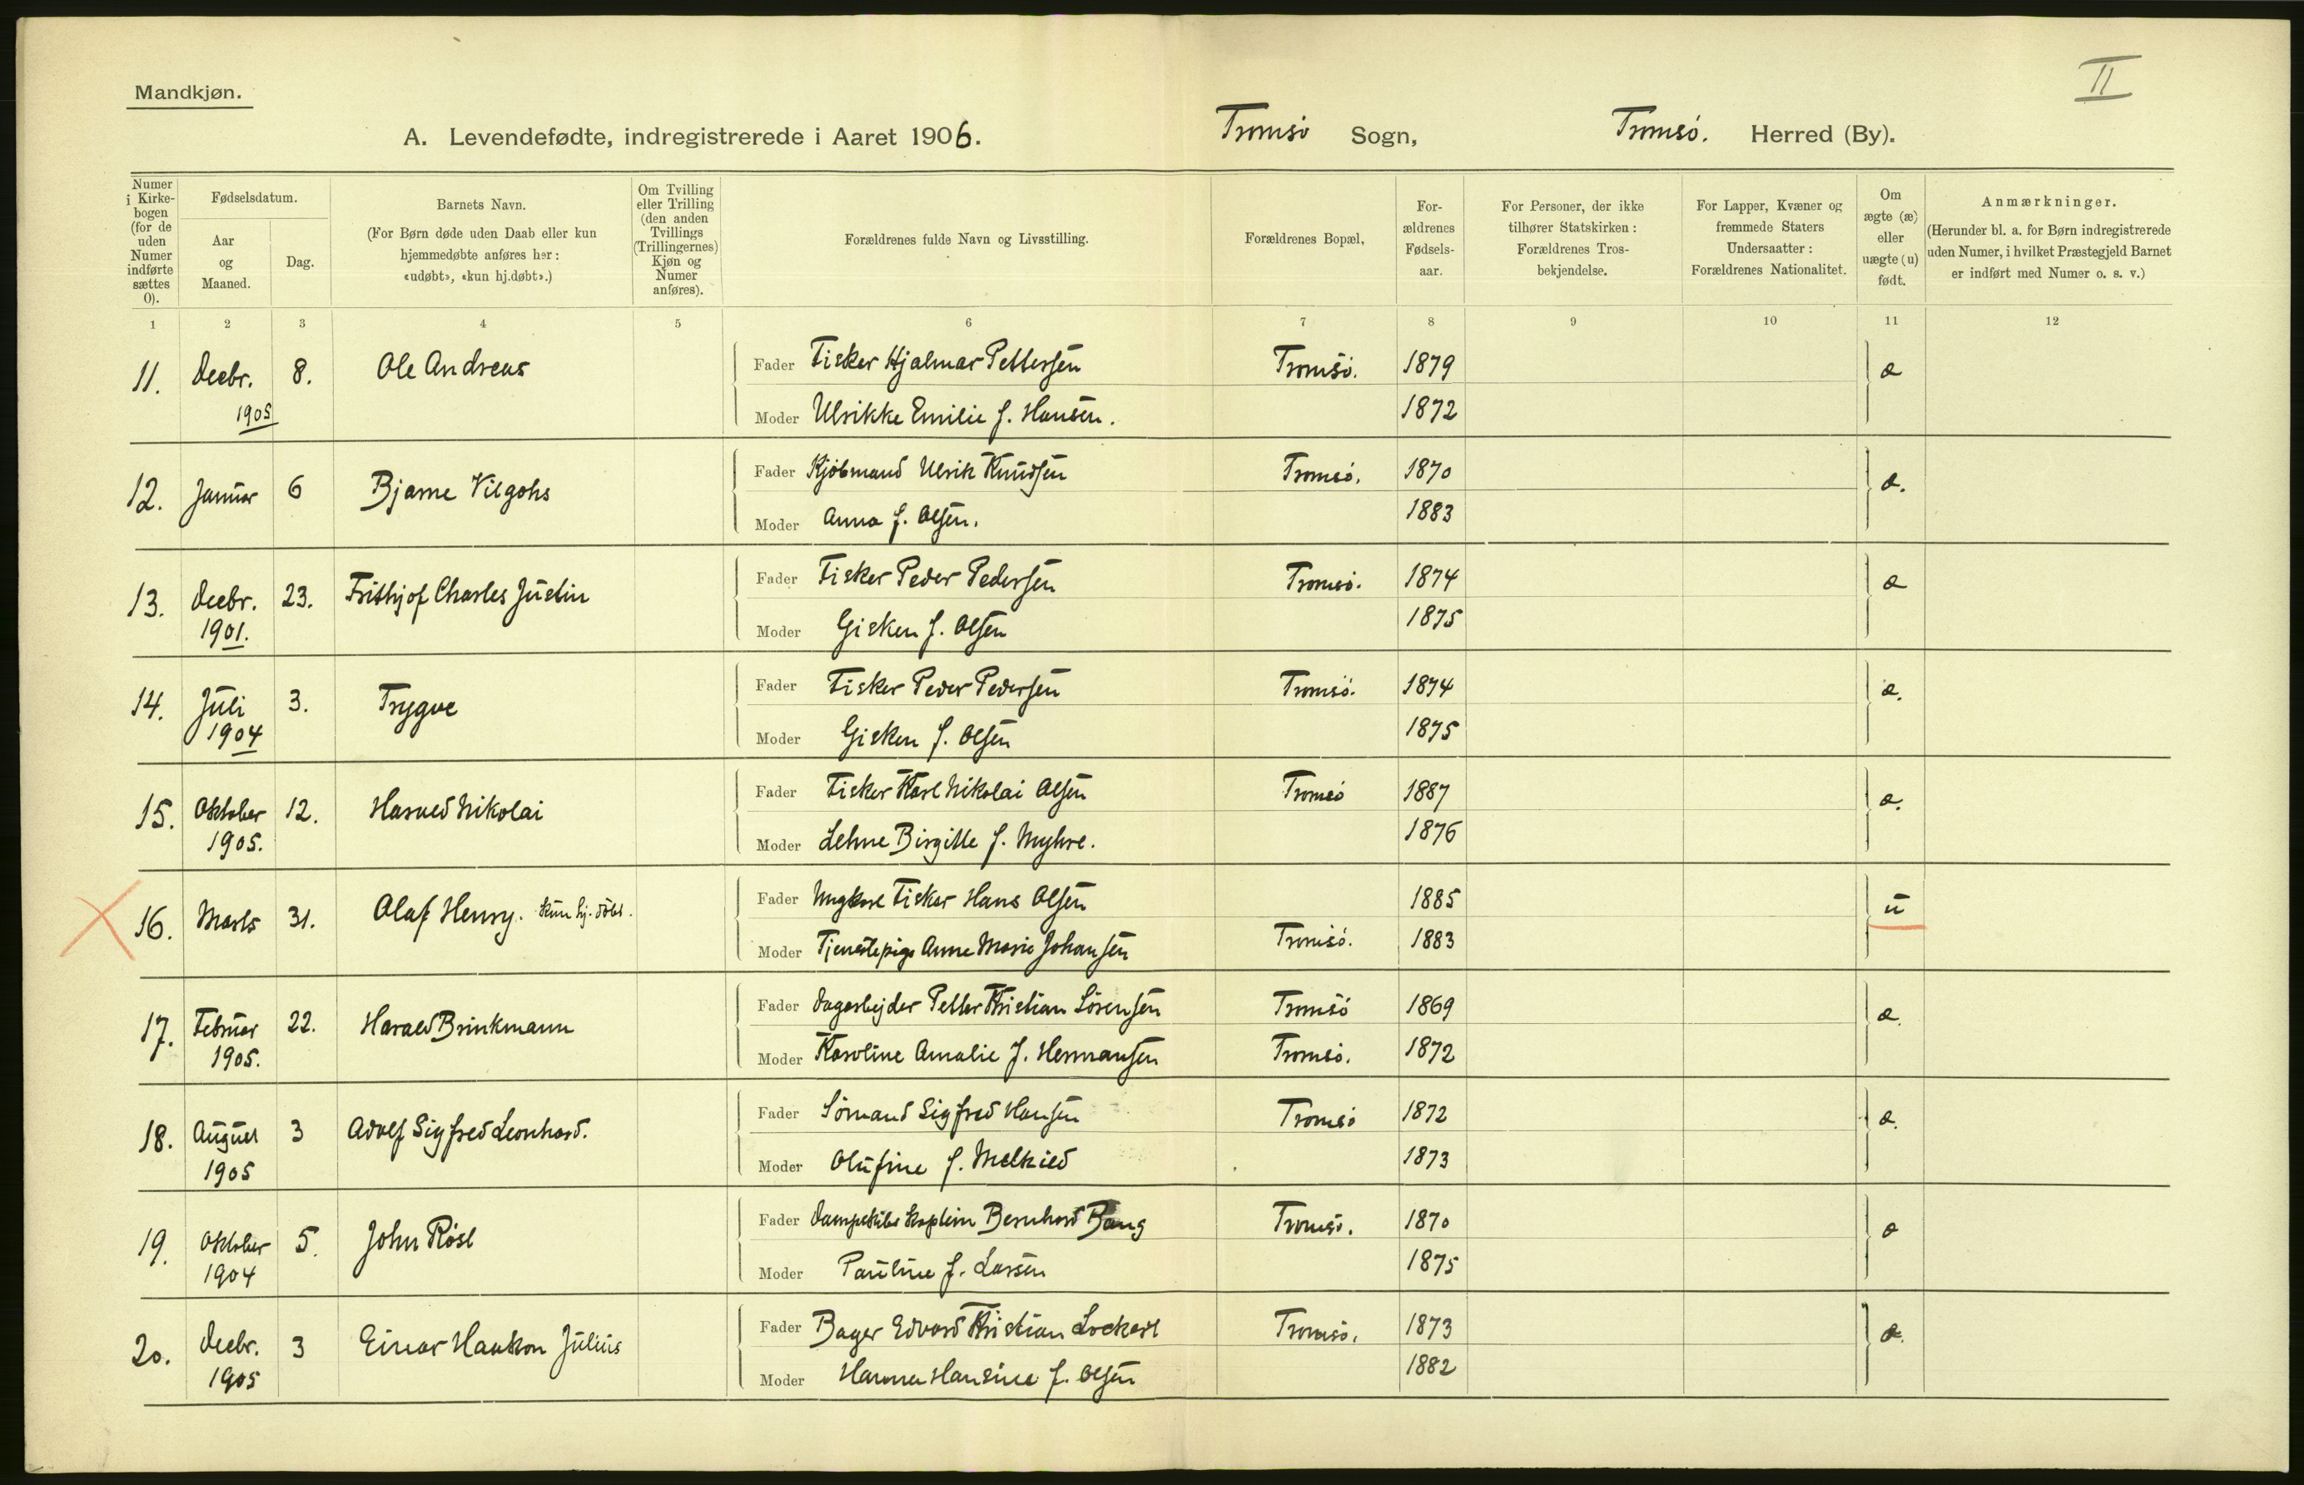 II
Mandkjøn.
A. Levendefødte, indregistrerede i Aaret 1906. Tromsö Sogn, Tromsö. Herred (By).
Numer i Kirkebogen (for de uden Numer indførte sættes 0).
Fødselsdatum.
Aar og Maaned.
Dag.
Barnets Navn.
(For Børn døde uden Daab eller kun hjemmedøbte anføres her: «udøbt», «kun hj.døbt».)
Om Tvilling eller Trilling (den anden Tvillings (Trillingernes) Kjøn og Numer anføres).
Forældrenes fulde Navn og Livsstilling.
Forældrenes Bopæl,
Forældrenes Fødselsaar.
For Personer, der ikke tilhører Statskirken: Forældrenes Trosbekjendelse.
For Lapper, Kvæner og fremmede Staters Undersaatter: Forældrenes Nationalitet.
Om ægte (æ) eller uægte (u) født.
Anmærkninger.
(Herunder bl. a. for Børn indregistrerede uden Numer, i hvilket Præstegjeld Barnet er indført med Numer o. s. v.)
1 2 3 4 5 6 7 8 9 10 11 12
11. Decbr. 8. Ole Andreas Fader Fisker Hjalmar Pettersen Tromsö. 1879 æ
1905 Moder Ulrikke Emilie f. Hansen. 1872
12. Januar 6 Bjarne Fader Kjöbmand Ulrik Knudsen Tromsö. 1870 æ.
Moder Anna f. Olsen. 1883
13. Decbr. 23. Frithjof Charles Justin Fader Fisker Peder Pedersen Tromsö. 1874 æ
1901. Moder Gisken f. Olsen 1875
14. Juli 3. Trygve Fader Fisker Peder Pedersen Tromsö. 1874 æ.
1904 Moder Gisken f. Olsen 1875
15. Oktober 12. Harald Nikolai Fader Fisker Karl Nikolai Olsen Tromsö 1887 æ.
1905. Moder Lehne Birgitte f. Myhre. 1876
16. Marts 31. Olaf Henry. kun hj. döbt. Fader Ungkarl Fisker Hans Olsen 1885 u
Moder Tjenestepige Anne Marie Johansen Tromsö. 1883
17. Februar 22. Harald Brinkmann Fader Dagarbejder Petter Kristian Sörensen Tromsö 1869 æ.
1905. Moder Karoline Amalie f. Hermansen Tromsö. 1872
18. August 3 Adolf Sigfred Leonhard. Fader Sömand Sigfred Hansen Tromsö 1872 æ.
1905 Moder Olufine f. 1873
19. Oktober 5. John Röst Fader Dampskibskaptein Bernhard Bang Tromsö. 1870 æ
1904 Moder Pauline f. Larsen 1875
20. Decbr. 3 Einar Haakon Julius Fader Bager Edvard Kristian Lockert Tromsö. 1873 æ.
1905 Moder Hanna Hansine f. Olsen 1882